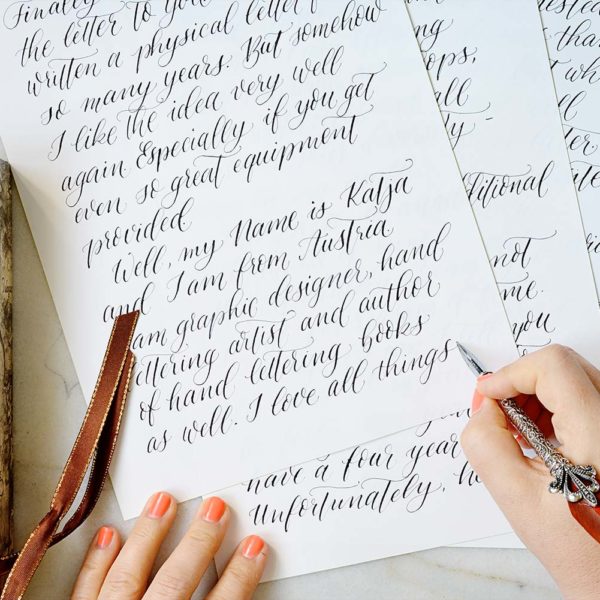 Finally
the letter to you
written a physical letter f
so many years. But somehow
I like the idea very well
again Especially if you get
even so great equipment
provided
Well, my Name is Katja
and I am from Austria
am graphic designer, hand
ettering artist and author
of hand lettering books
as well. I love all things
have a four year
Unfortunately, he
ng
ops,
all
ty -
ditional
not
me.
you
than
t wh
ll
ter